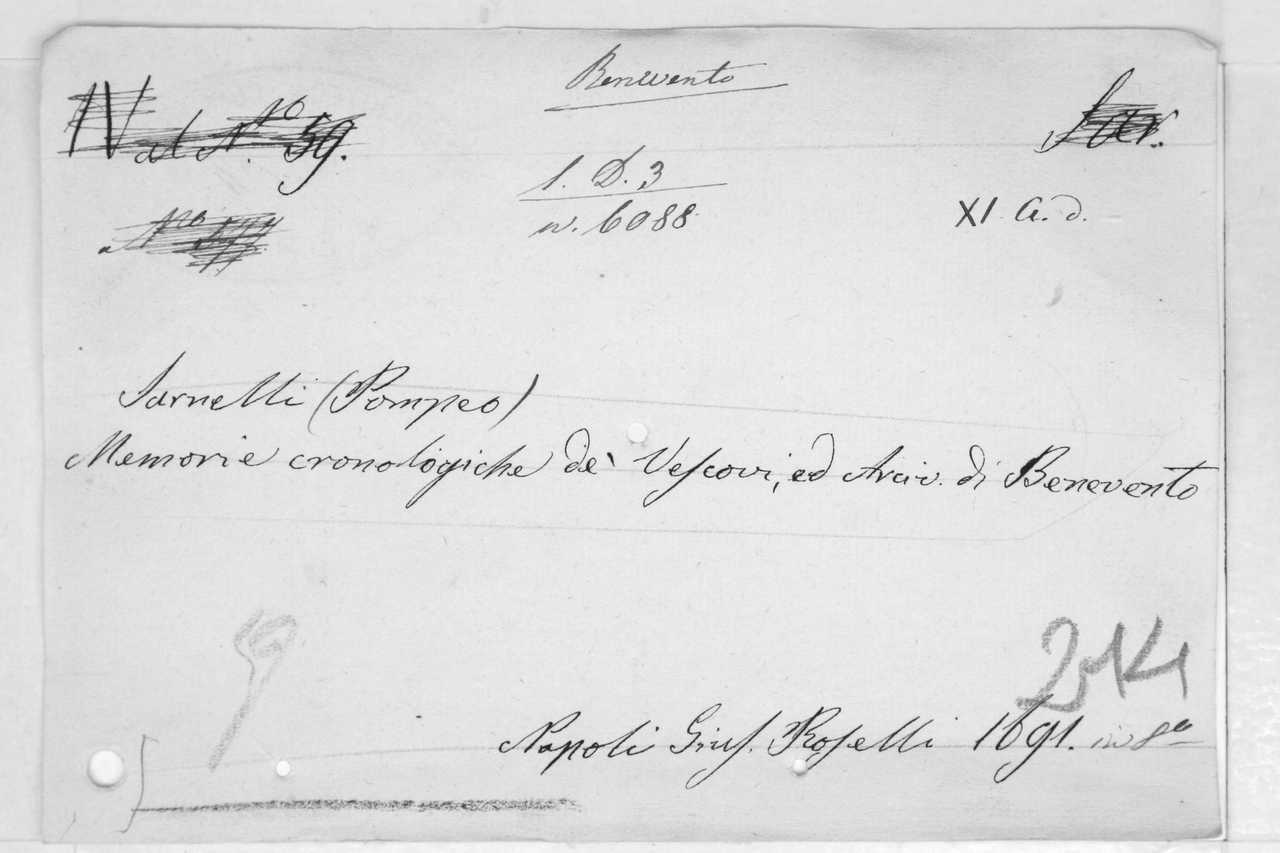 Benevento
IV al N.to 59.
1. D. 3
n. 6088
XI. a. d.
Sarnelli (Pompeo)
Memorie cronologiche de' Vescovi, ed Arciv. di Benevento
Napoli Gius. Roselli 1691. in 8o